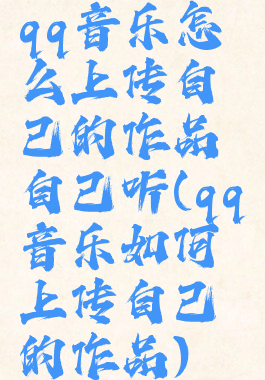 qq音乐怎
么上传自
己的作品
自己听(qq
音乐如何
上传自己
的作品)